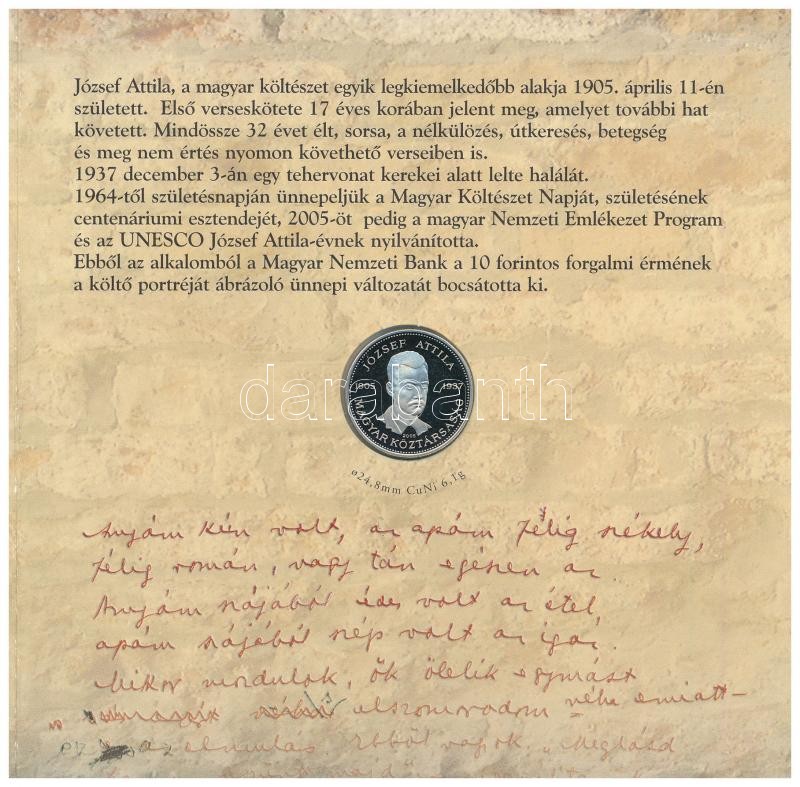 József Attila, a magyar költészet egyik legkiemelkedőbb alakja 1905. április 11-én
született. Első verseskötete 17 éves korában jelent meg, amelyet további hat
követett. Mindössze 32 évet élt, sorsa, a nélkülözés, útkeresés, betegség
és meg nem értés nyomon követhető verseiben is.
1937 december 3-án egy tehervonat kerekei alatt lelte halálát.
1964-től születésnapján ünnepeljük a Magyar Költészet Napját, születésének
centenáriumi esztendejét, 2005-öt pedig a magyar Nemzeti Emlékezet Program
és az UNESCO József Attila-évnek nyilvánította.
Ebből az alkalomból a Magyar Nemzeti Bank a 10 forintos forgalmi érmének
a költő portréját ábrázoló ünnepi változatát bocsátotta ki.
JÓZSEF ATTILA
1905 1937
2005
MAGYAR KÖZTÁRSASÁG
darabanth
ø24,8mm CuNi 6,1g
Anyám kún volt, az apám félig székely,
félig román, vagy tán egészen az.
Anyám szájából édes volt az étel,
apám szájából szép volt az igaz.
Mikor mozdulok, ők ölelik egymást
elszomorodom néha emiatt -
ez az elmulás. Ebből vagyok. „Meglásd